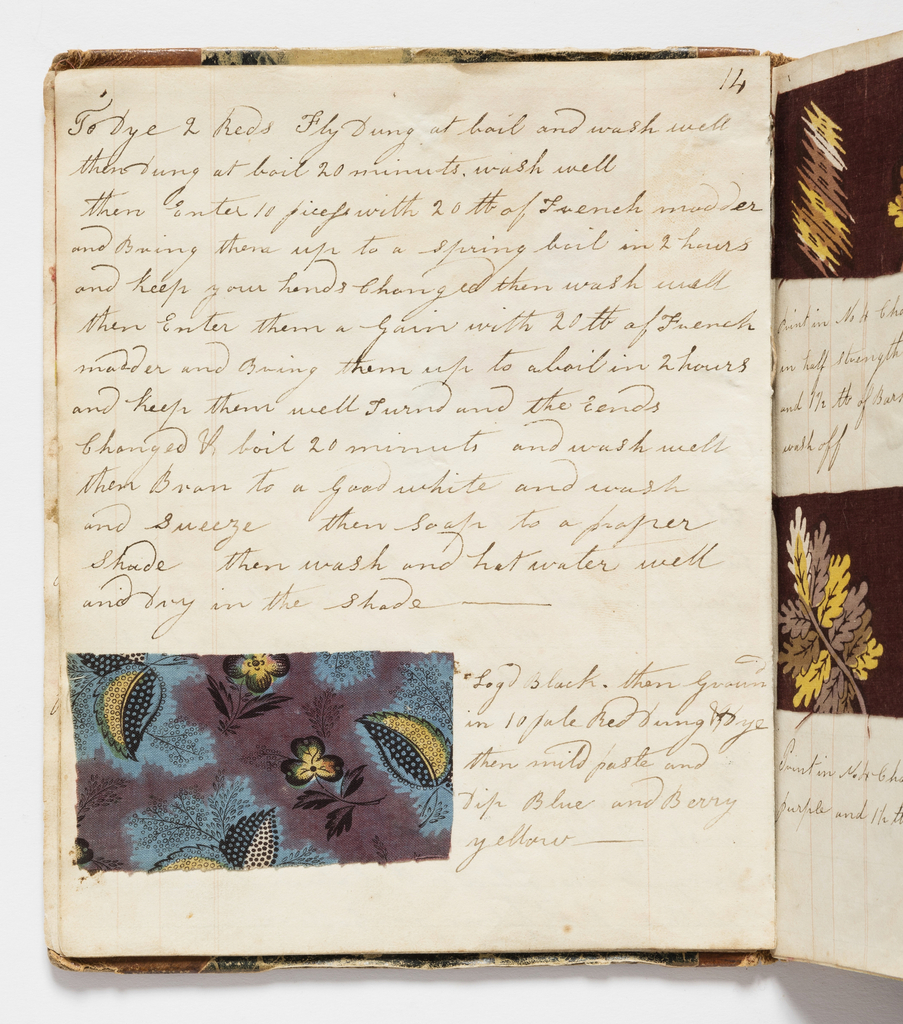 14
To Dye 2 Reds Fly Dung at boil and wash well
then Dung at boil 20 minuts. wash well
then Enter 10 pices with 20 tb of French madder
and Bring them up to a spring boil in 2 hours
and keep your hends Changed then wash well
then Enter them a Gain with 20 tb of French
madder and Bring them up to aboil in 2 hours
and keep them well Turnd and the Eends
Changed & boil 20 minuts and wash well
then Bran to a Good white and wash
and Sueeze then Soap to a proper
Shade then wash and hot water well
and Dry in the Shade
Logd Black. then Ground
in 10 pale Red Dung & Dye
then mild paste and
Dip Blue and Berry
yellow
Print in No 4
in half strength
and 1 1/2 tb of
wash off
Print in No 4
purple and 1 1/2 tb